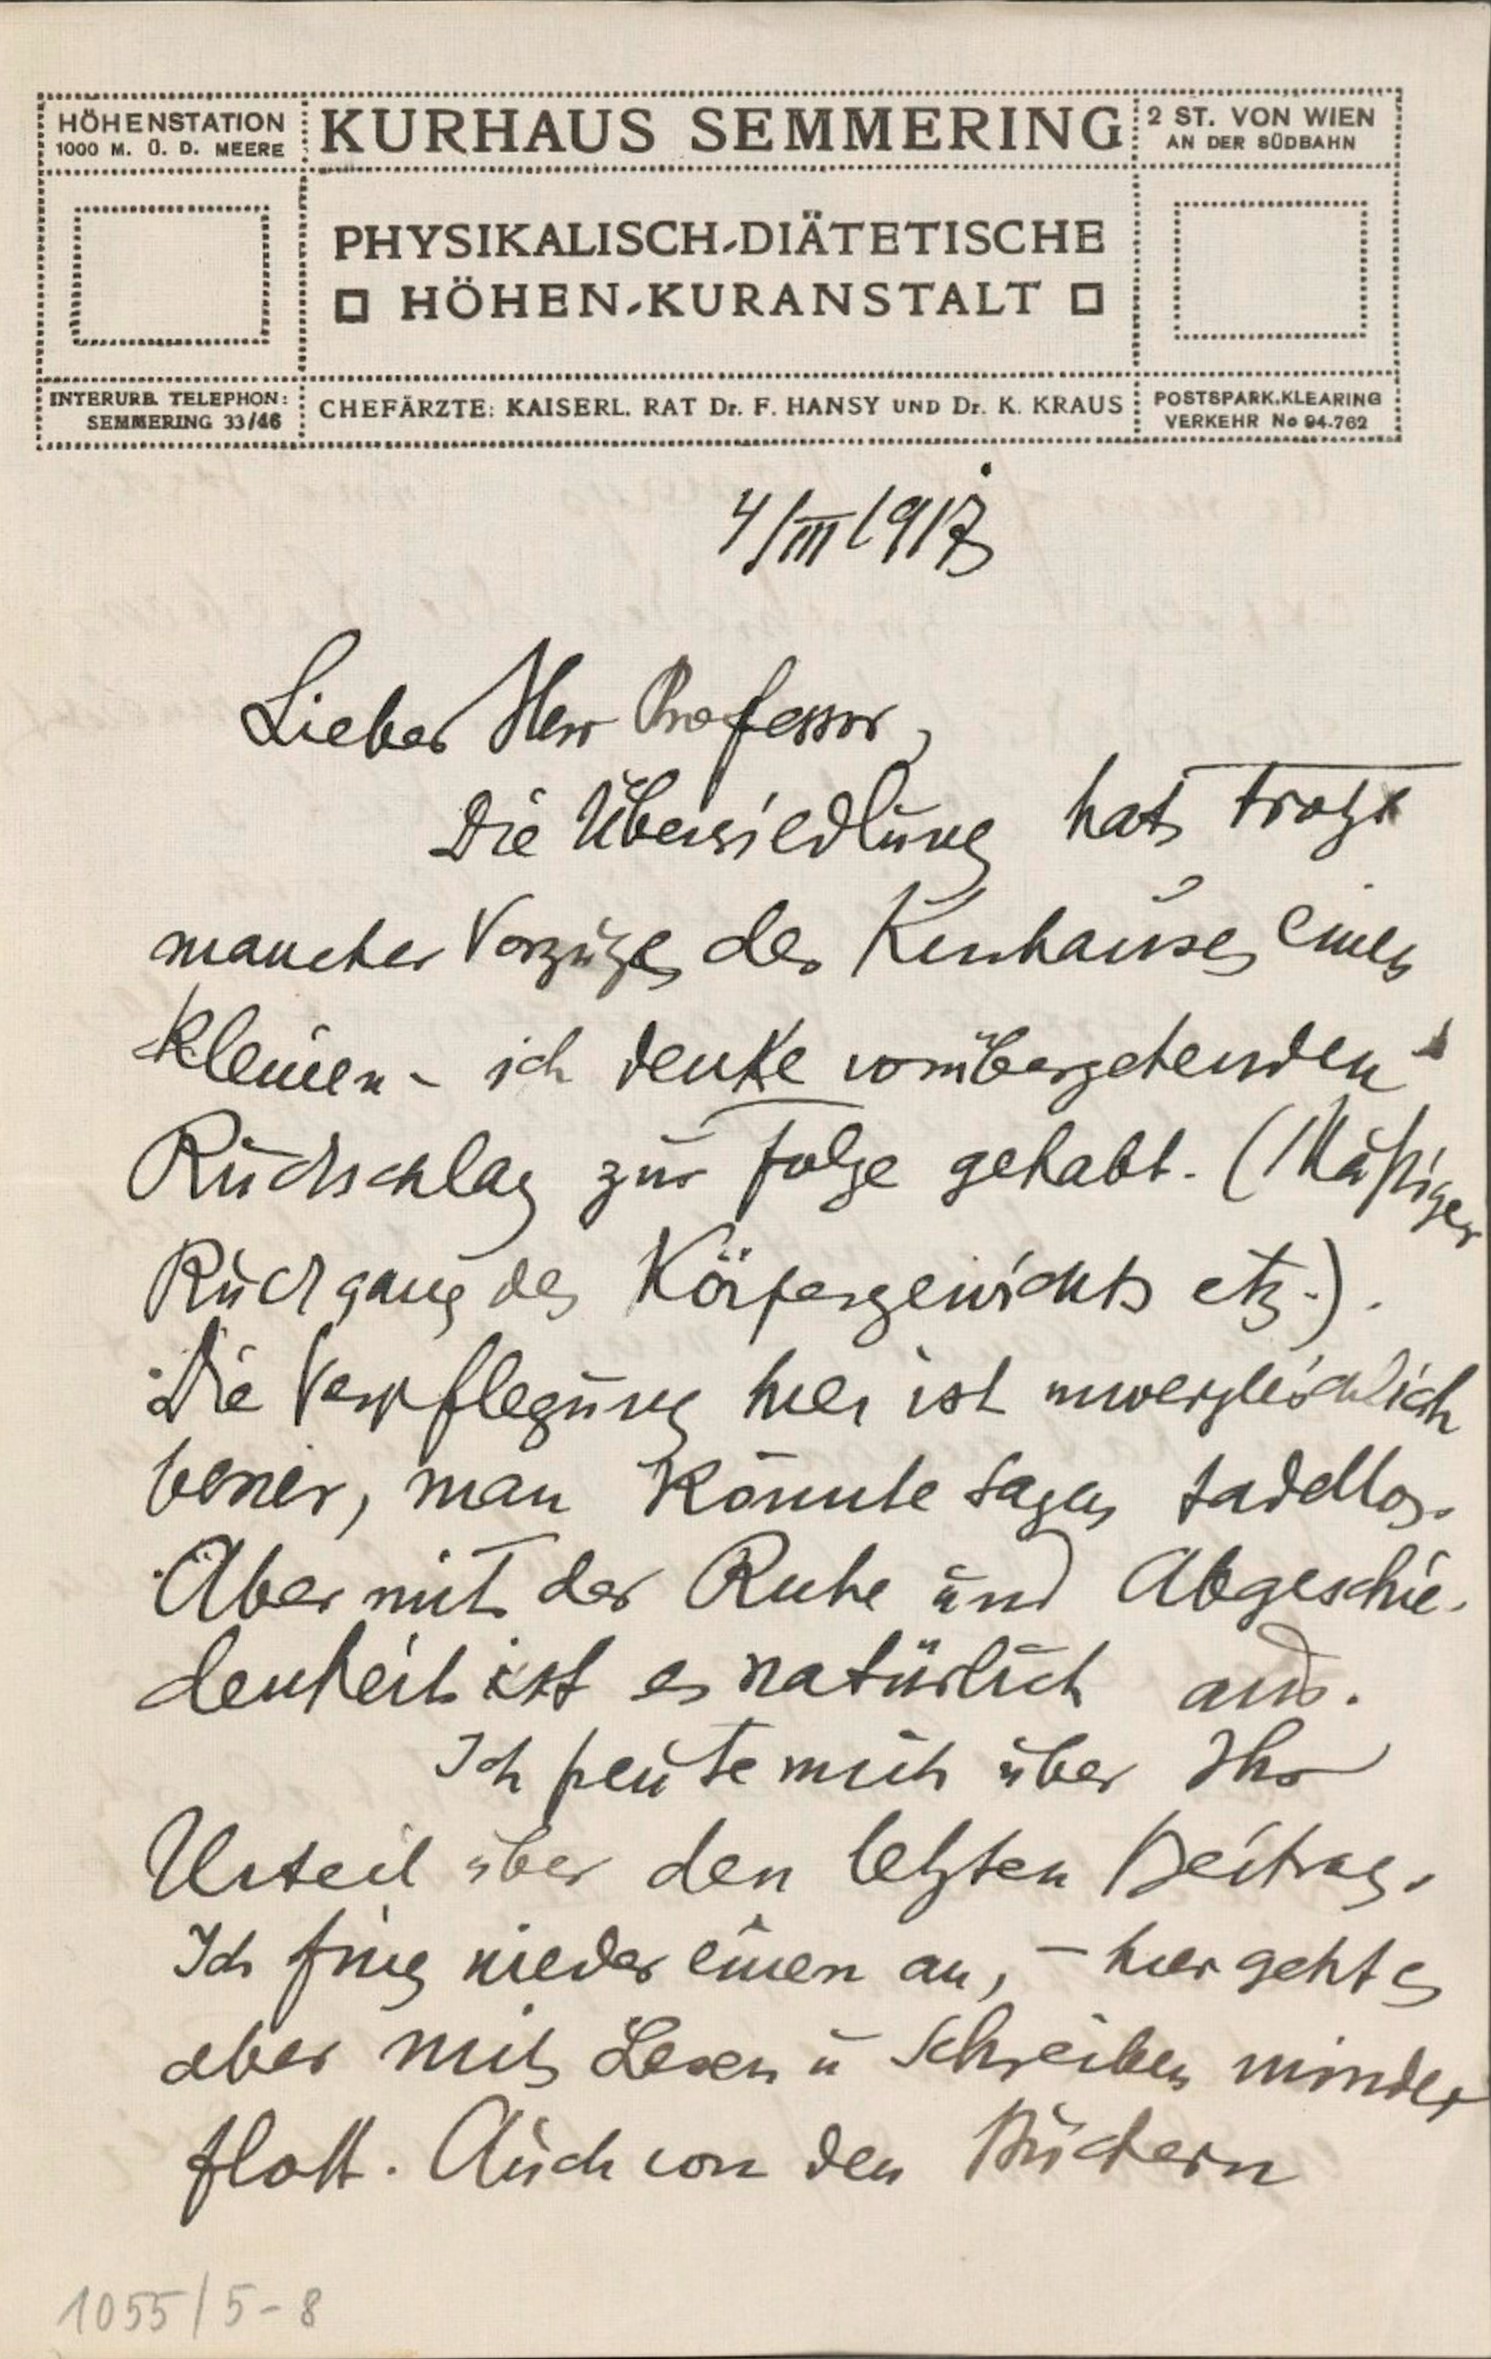 HÖHENSTATION
1000 M. Ü. D. MEERE
KURHAUS SEMMERING
2 ST. VON WIEN
AN DER SÜDBAHN
PHYSIKALISCH-DIÄTETISCHE
HÖHEN-KURANSTALT
INTERURB. TELEPHON:
SEMMERING 33/46
CHEFÄRZTE: KAISERL. RAT Dr. F. HANSY UND Dr. K. KRAUS
POSTSPARK.KLEARING
VERKEHR No 94.762
4/III 1917
Lieber Herr Professor,
Die Übersiedlung hat trotz
mancher Vorzüge des Kurhauses einen
kleinen – ich denke vorübergehenden –
Rückschlag zur Folge gehabt. (Mäßiger
Rückgang des Körpergewichts etz.).
Die Verpflegung hier ist unvergleichlich
besser, man könnte sagen tadellos.
Aber mit der Ruhe und Abgeschie-
denheit ist es natürlich aus.
Ich freute mich über Ihr
Urteil über den letzten Beitrag.
Ich fing wieder einen an, – hier geht es
aber mit Lesen u Schreiben minder
flott. Auch von den Büchern
1055/5-8